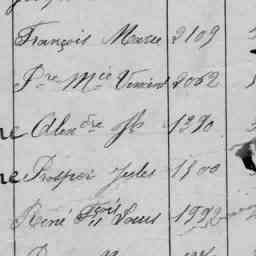 François Marie 2109
Pre Mie Vincent 2062
Alexdre Jh
Prosper Jules 1800
René Fçois Louis 1992